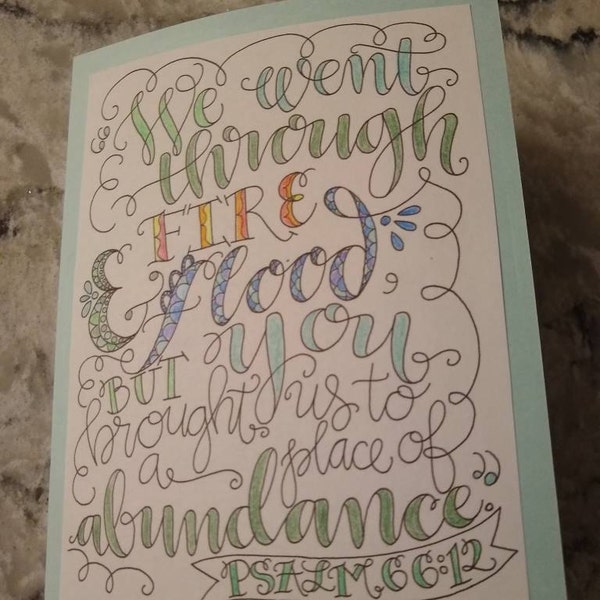 “We went
through
FIRE
& flood,
you
BUT
brought us to
a place of
abundance.”
PSALM 66:12